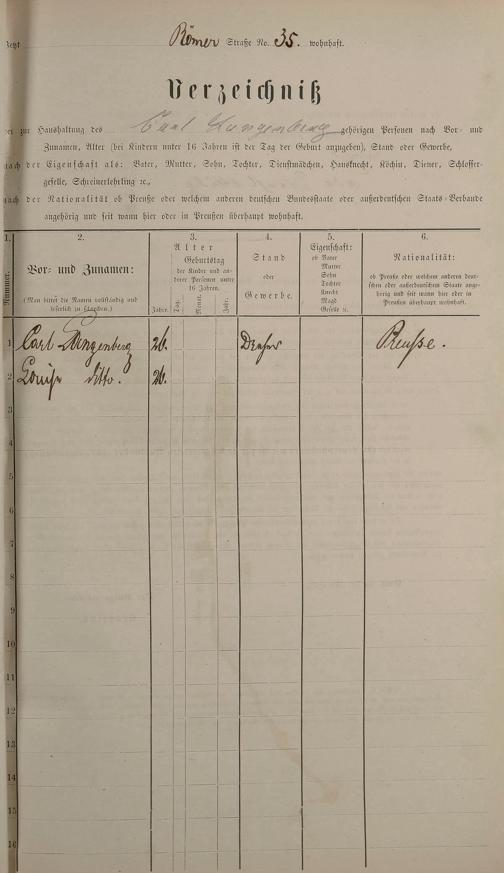 Jetzt Römer Straße No. 35. wohnhaft.
Verzeichniß
der zur Haushaltung des Carl Langenberg gehörigen Personen nach Vor- und
Zunamen, Alter (bei Kindern unter 16 Jahren ist der Tag der Geburt anzugeben), Stand oder Gewerbe,
nach der Eigenschaft als: Vater, Mutter, Sohn, Tochter, Dienstmädchen, Hausknecht, Köchin, Diener, Schlosser-
geselle, Schreinerlehrling ꝛc.,
nach der Nationalität ob Preuße oder welchem anderen deutschen Bundesstaate oder außerdeutschen Staats-Verbande
angehörig und seit wann hier oder in Preußen überhaupt wohnhaft.
1.
Nummer.
2.
Vor- und Zunamen:
(Man bittet die Namen vollständig und
leserlich zu schreiben.)
3.
Alter
Geburtstag
der Kinder und an-
derer Personen unter
16 Jahren.
Jahre.
Tag.
Monat.
Jahr.
4.
Stand
oder
Gewerbe.
5.
Eigenschaft:
ob Vater
Mutter
Sohn
Tochter
Knecht
Magd
Geselle ꝛc.
6.
Nationalität:
ob Preuße oder welchem anderen deut-
schen oder außerdeutschen Staate ange-
hörig und seit wann hier oder in
Preußen überhaupt wohnhaft.
1 Carl Langenberg 26. Dreher Preuße.
2 Louise ditto. 26.
3
4
5
6
7
8
9
10
11
12
13
14
15
16